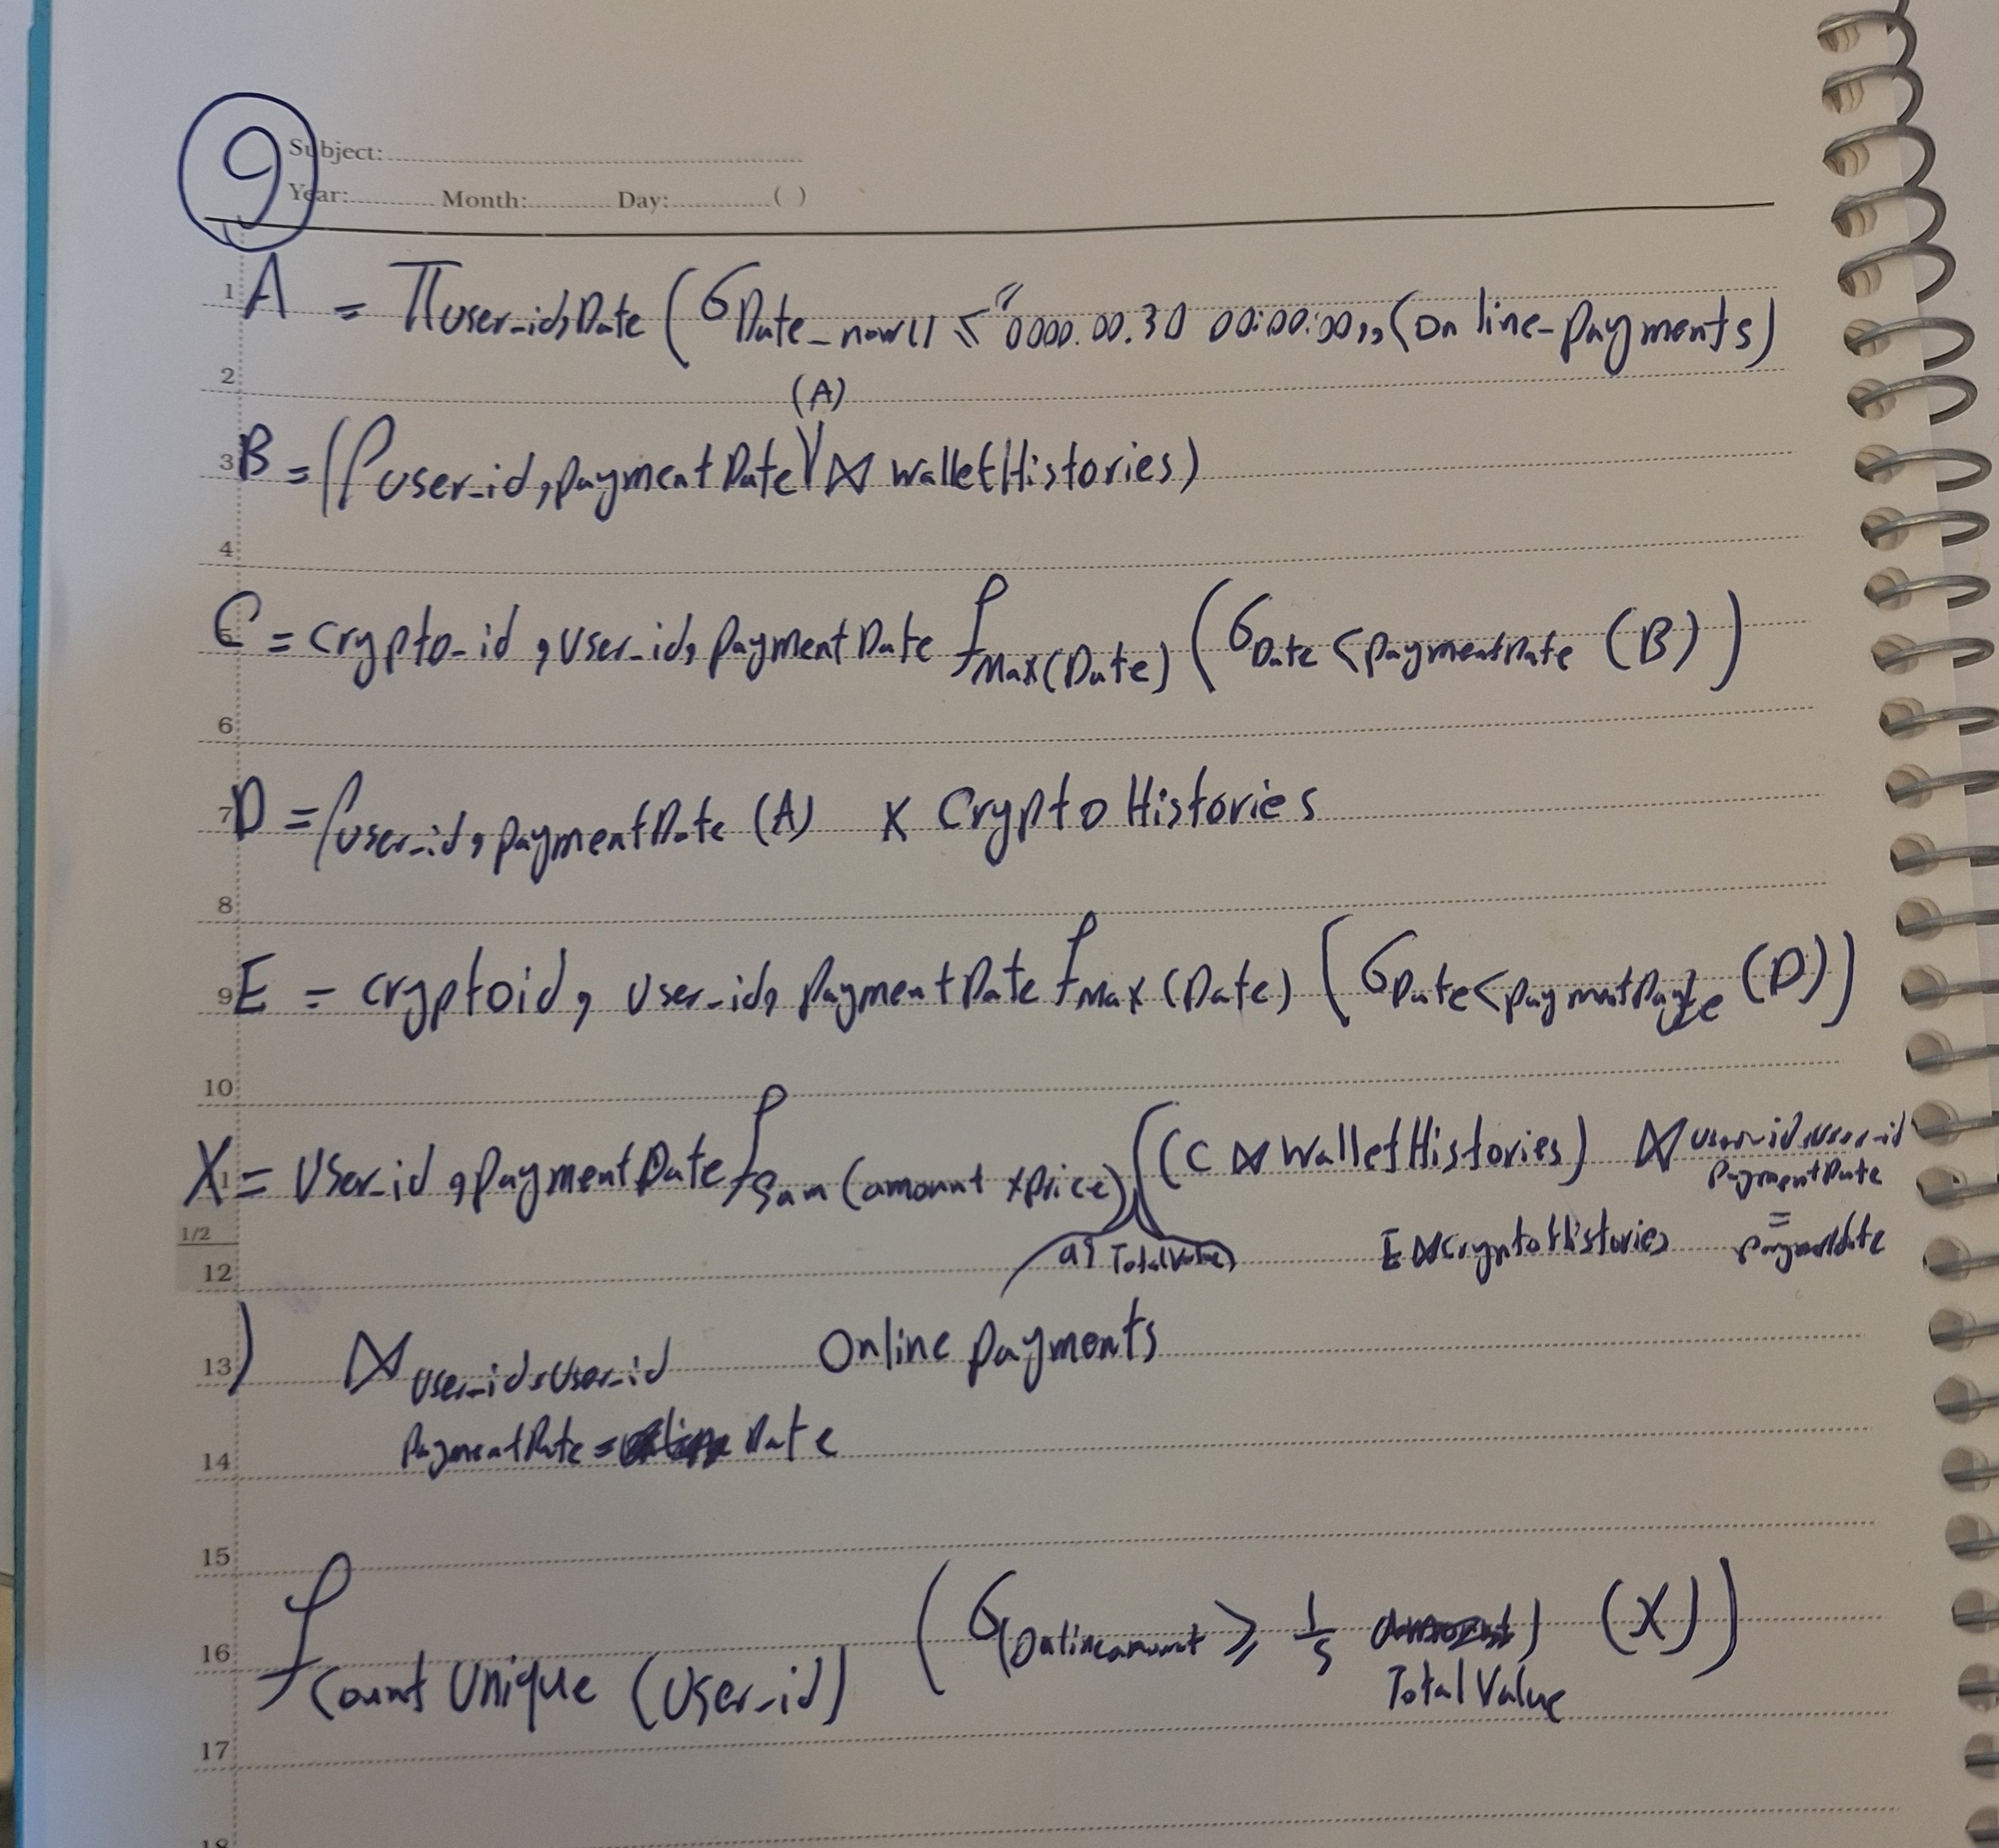 9
Subject:
Year: Month: Day: ( )
1 A = π user_id, Date (σ Date - now() ≤ "0000.00.30 00:00:00,, (Online-Payments)
2 (A)
3 B = (ρ user_id, paymentDate) ⋈ walletHistories)
4
5 C = crypto_id, user_id, paymentDate ƒ Max(Date) (σ Date < paymentDate (B))
6
7 D = ρ user_id, paymentDate (A) x CryptoHistories
8
9 E = cryptoid, user_id, paymentDate ƒ Max (Date) (σ Date < (D))
10
11 X = User_id, paymentDate ƒ Sum (amount x price) ((C ⋈ WalletHistories) ⋈ user_id = user_id
PaymentDate
=
1/2 as TotalValue E ⋈ CryptoHistories
12
13 ) ⋈ user_id = User_id Online payments
14 PaymentDate = Date
15
16 ƒ Count Unique (User_id) (σ (Onlineamount ≥ 1/5 ) (X))
Total Value
17
18